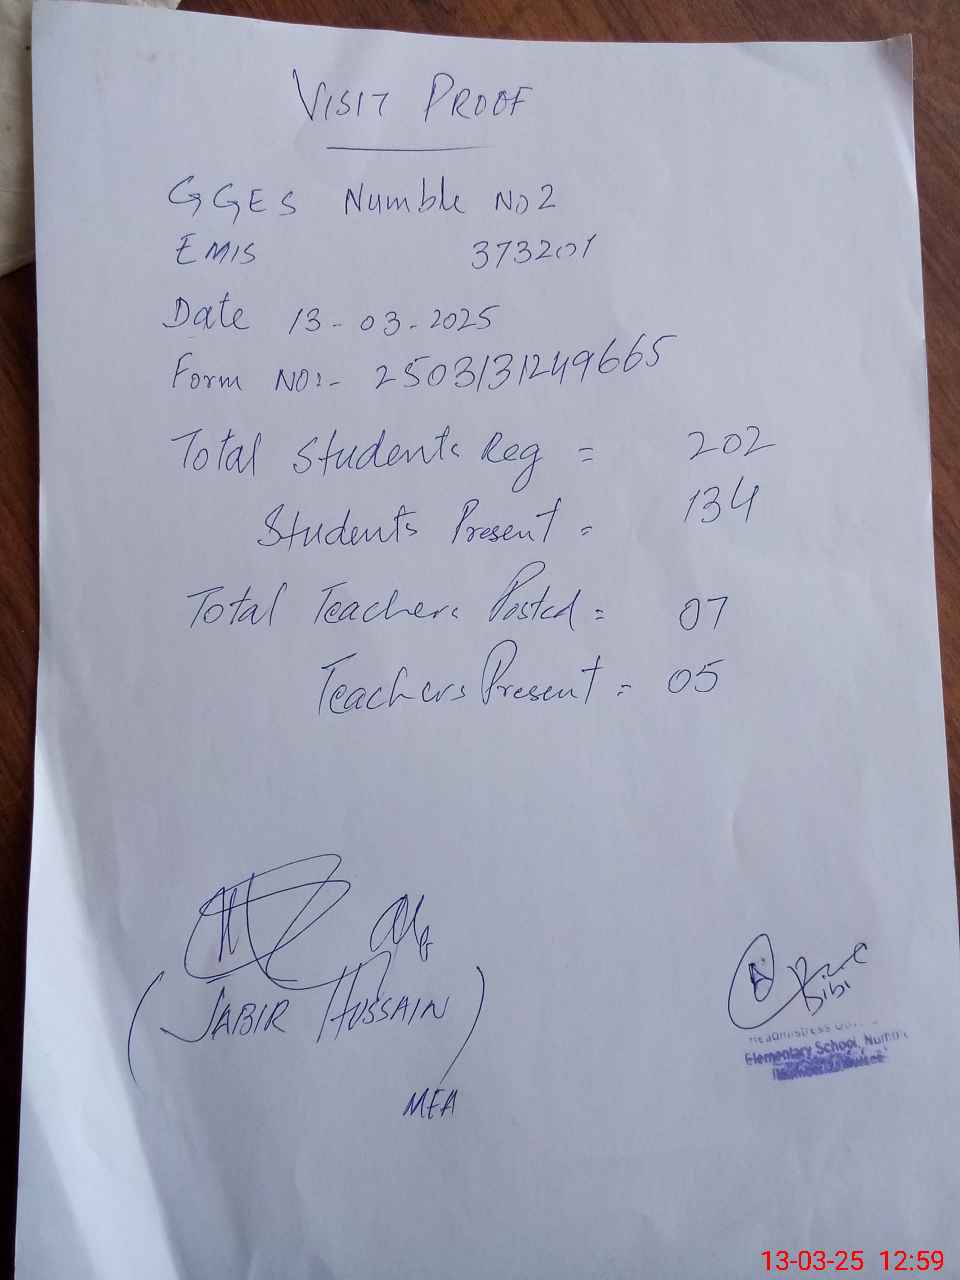 VISIT PROOF
GGES Numble NO 2
EMIS 373201
Date 13-03-2025
Form NO:- 2503131249665
Total Students Reg = 202
Students Present = 134
Total Teachers Posted = 07
Teachers Present = 05
(JABIR HUSSAIN)
MEA
Bibi
Headmistress
Elementary School,
13-03-25 12:59